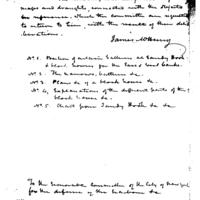 maps and draughts, connected with the objects
or references. Which the committee are requested
to return to him, with the results of their deli-
berations.
James McHenry
No. 1. Position of Gallies at Sandy Hook
& block houses for the East & West banks.
No. 2. The Narrows, batteries &c
No. 3. Plans of a block house &c.
No. 4. Explanations of the different parts of the
block house &c
No. 5. Chart from Sandy Hook to &c
To the Honorable Committee of the City of New York
for the defence of the harbour &c